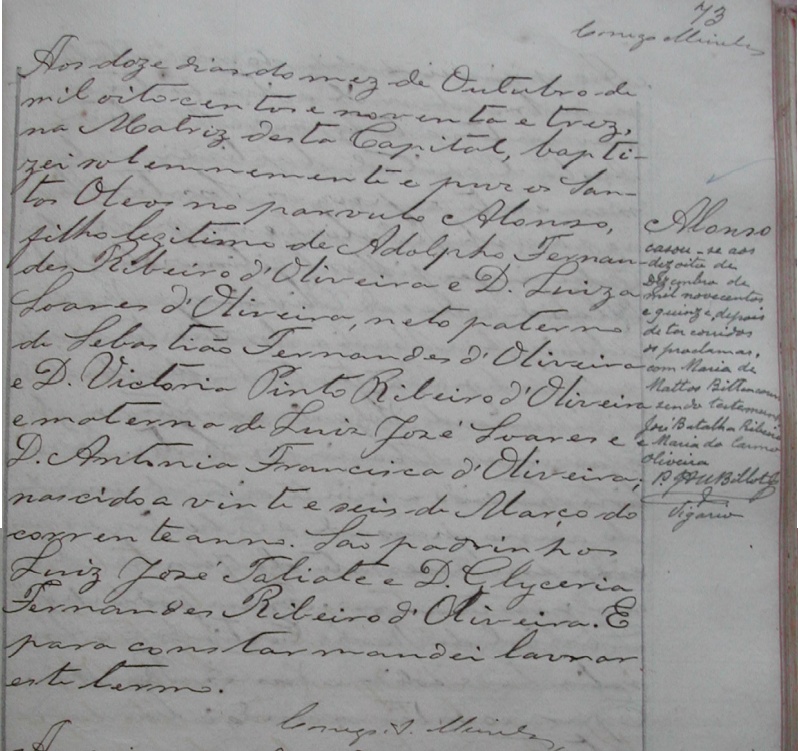 73
Conego Mendes
Aos doze dias do mez de Outubro de
mil oitocentos e noventa e trez,
na Matriz desta Capital, bapti-
zei solemnemente e puz os San-
tos Oleos no parvulo Alonso,
filho legitimo de Adolpho Fernan-
des Ribeiro d'Oliveira e D. Luiza
Soares d'Oliveira, neto paterno
de Sebastião Fernandes d'Oliveira
e D. Victoria Pinto Ribeiro d'Oliveira
e materno de Luiz José Soares e
D. Antonia Francisca d'Oliveira;
nascido a vinte e seis de Março do
corrente anno. São padrinhos
Luiz José e D. Glyceria
Fernandes Ribeiro d'Oliveira. E
para constar mandei lavrar
este termo.
Conego Mendes
Alonso
casou-se aos
dezoito de
Dezembro de
mil novecentos
e quinze, depois
de ta corridos
os proclamas,
com Maria de
Mattos Bittencourt
sendo testemunhas
José Batalha Ribeiro
e Maria do Carmo
Oliveira
Vigario